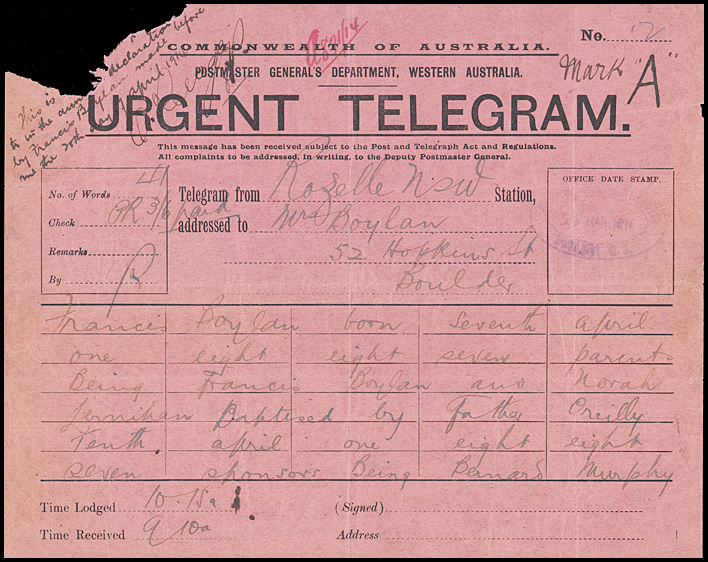 This is
to in the annexed declaration
by Francis Boylan made before
me the 20th day of April 1914
No. 12
COMMONWEALTH OF AUSTRALIA.
POSTMASTER GENERAL'S DEPARTMENT, WESTERN AUSTRALIA.
Mark "A"
URGENT TELEGRAM.
This message has been received subject to the Post and Telegraph Act and Regulations.
All complaints to be addressed, in writing, to the Deputy Postmaster General.
No. of Words 41
Check PR 3/6 paid
Remarks
By R
Telegram from Rozelle NSW Station,
addressed to Mrs Boylan
52 Hopkins St
Boulder
OFFICE DATE STAMP.
Francis Boylan born seventh april
one eight eight seven parents
Being Francis Boylan and Norah
Jernihan Baptised by Father Oreilly
Tenth april one eight eight
seven sponsors Being Bernard Murphy
Time Lodged 10.15a
(Signed)
Time Received 9 10a
Address